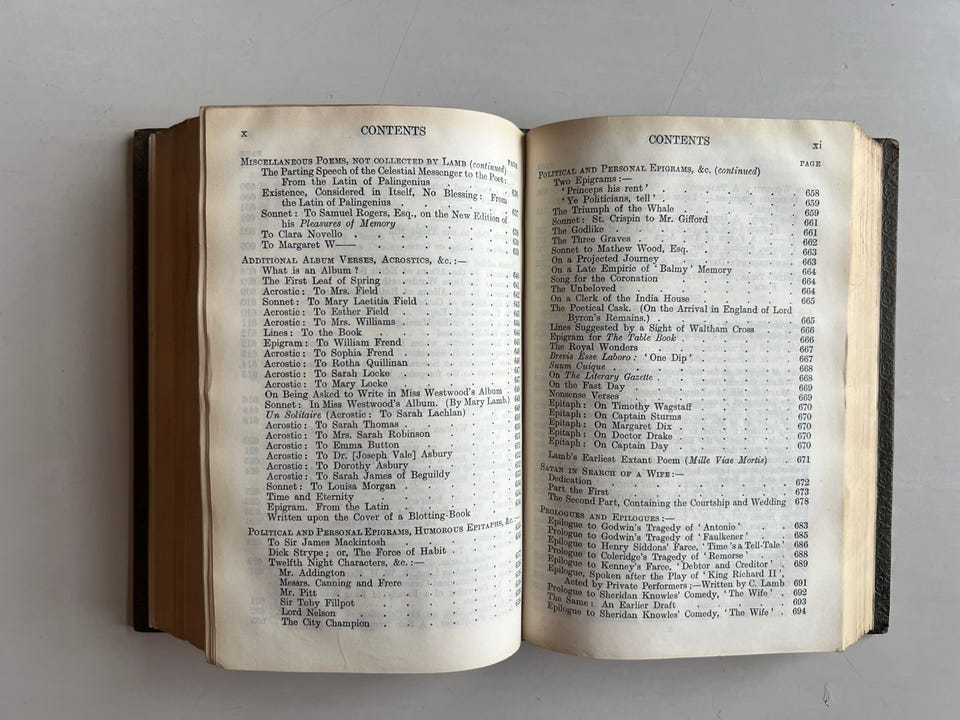 x CONTENTS
PAGE
Miscellaneous Poems, not collected by Lamb (continued)
The Parting Speech of the Celestial Messenger to the Poet:
From the Latin of Palingenius
Existence, Considered in Itself, No Blessing: From
the Latin of Palingenius
Sonnet: To Samuel Rogers, Esq., on the New Edition of
his Pleasures of Memory
To Clara Novello
To Margaret W——
Additional Album Verses, Acrostics, &c.:—
What is an Album?
The First Leaf of Spring
Acrostic: To Mrs. Field
Sonnet: To Mary Laetitia Field
Acrostic: To Esther Field
Acrostic: To Mrs. Williams
Lines: To the Book
Epigram: To William Frend
Acrostic: To Sophia Frend
Acrostic: To Rotha Quillinan
Acrostic: To Sarah Locke
Acrostic: To Mary Locke
On Being Asked to Write in Miss Westwood's Album
Sonnet: In Miss Westwood's Album. (By Mary Lamb)
Un Solitaire (Acrostic: To Sarah Lachlan)
Acrostic: To Sarah Thomas
Acrostic: To Mrs. Sarah Robinson
Acrostic: To Emma Button
Acrostic: To Dr. [Joseph Vale] Asbury
Acrostic: To Dorothy Asbury
Acrostic: To Sarah James of Beguildy
Sonnet: To Louisa Morgan
Time and Eternity
Epigram. From the Latin
Written upon the Cover of a Blotting-Book
Political and Personal Epigrams, Humorous Epitaphs, &c.:—
To Sir James Mackintosh
Dick Strype; or, The Force of Habit
Twelfth Night Characters, &c.:—
Mr. Addington
Messrs. Canning and Frere
Mr. Pitt
Sir Toby Fillpot
Lord Nelson
The City Champion
CONTENTS xi
PAGE
Political and Personal Epigrams, &c. (continued)
Two Epigrams:—
'Princeps his rent' 658
'Ye Politicians, tell' 659
The Triumph of the Whale 659
Sonnet: St. Crispin to Mr. Gifford 661
The Godlike 661
The Three Graves 662
Sonnet to Mathew Wood, Esq. 663
On a Projected Journey 663
On a Late Empiric of 'Balmy' Memory 664
Song for the Coronation 664
The Unbeloved 664
On a Clerk of the India House 665
The Poetical Cask. (On the Arrival in England of Lord
Byron's Remains.) 665
Lines Suggested by a Sight of Waltham Cross 666
Epigram for The Table Book 666
The Royal Wonders 667
Brevis Esse Laboro: 'One Dip' 667
Suum Cuique 668
On The Literary Gazette 668
On the Fast Day 669
Nonsense Verses 669
Epitaph: On Timothy Wagstaff 670
Epitaph: On Captain Sturms 670
Epitaph: On Margaret Dix 670
Epitaph: On Doctor Drake 670
Epitaph: On Captain Day 670
Lamb's Earliest Extant Poem (Mille Viae Mortis) 671
Satan in Search of a Wife:—
Dedication 672
Part the First 673
The Second Part, Containing the Courtship and Wedding 678
Prologues and Epilogues:—
Epilogue to Godwin's Tragedy of 'Antonio' 683
Prologue to Godwin's Tragedy of 'Faulkener' 685
Epilogue to Henry Siddons' Farce, 'Time's a Tell-Tale' 686
Prologue to Coleridge's Tragedy of 'Remorse' 688
Epilogue to Kenney's Farce, 'Debtor and Creditor' 689
Epilogue, Spoken after the Play of 'King Richard II',
Acted by Private Performers:—Written by C. Lamb 691
Prologue to Sheridan Knowles' Comedy, 'The Wife' 692
The Same: An Earlier Draft 693
Epilogue to Sheridan Knowles' Comedy, 'The Wife' 694